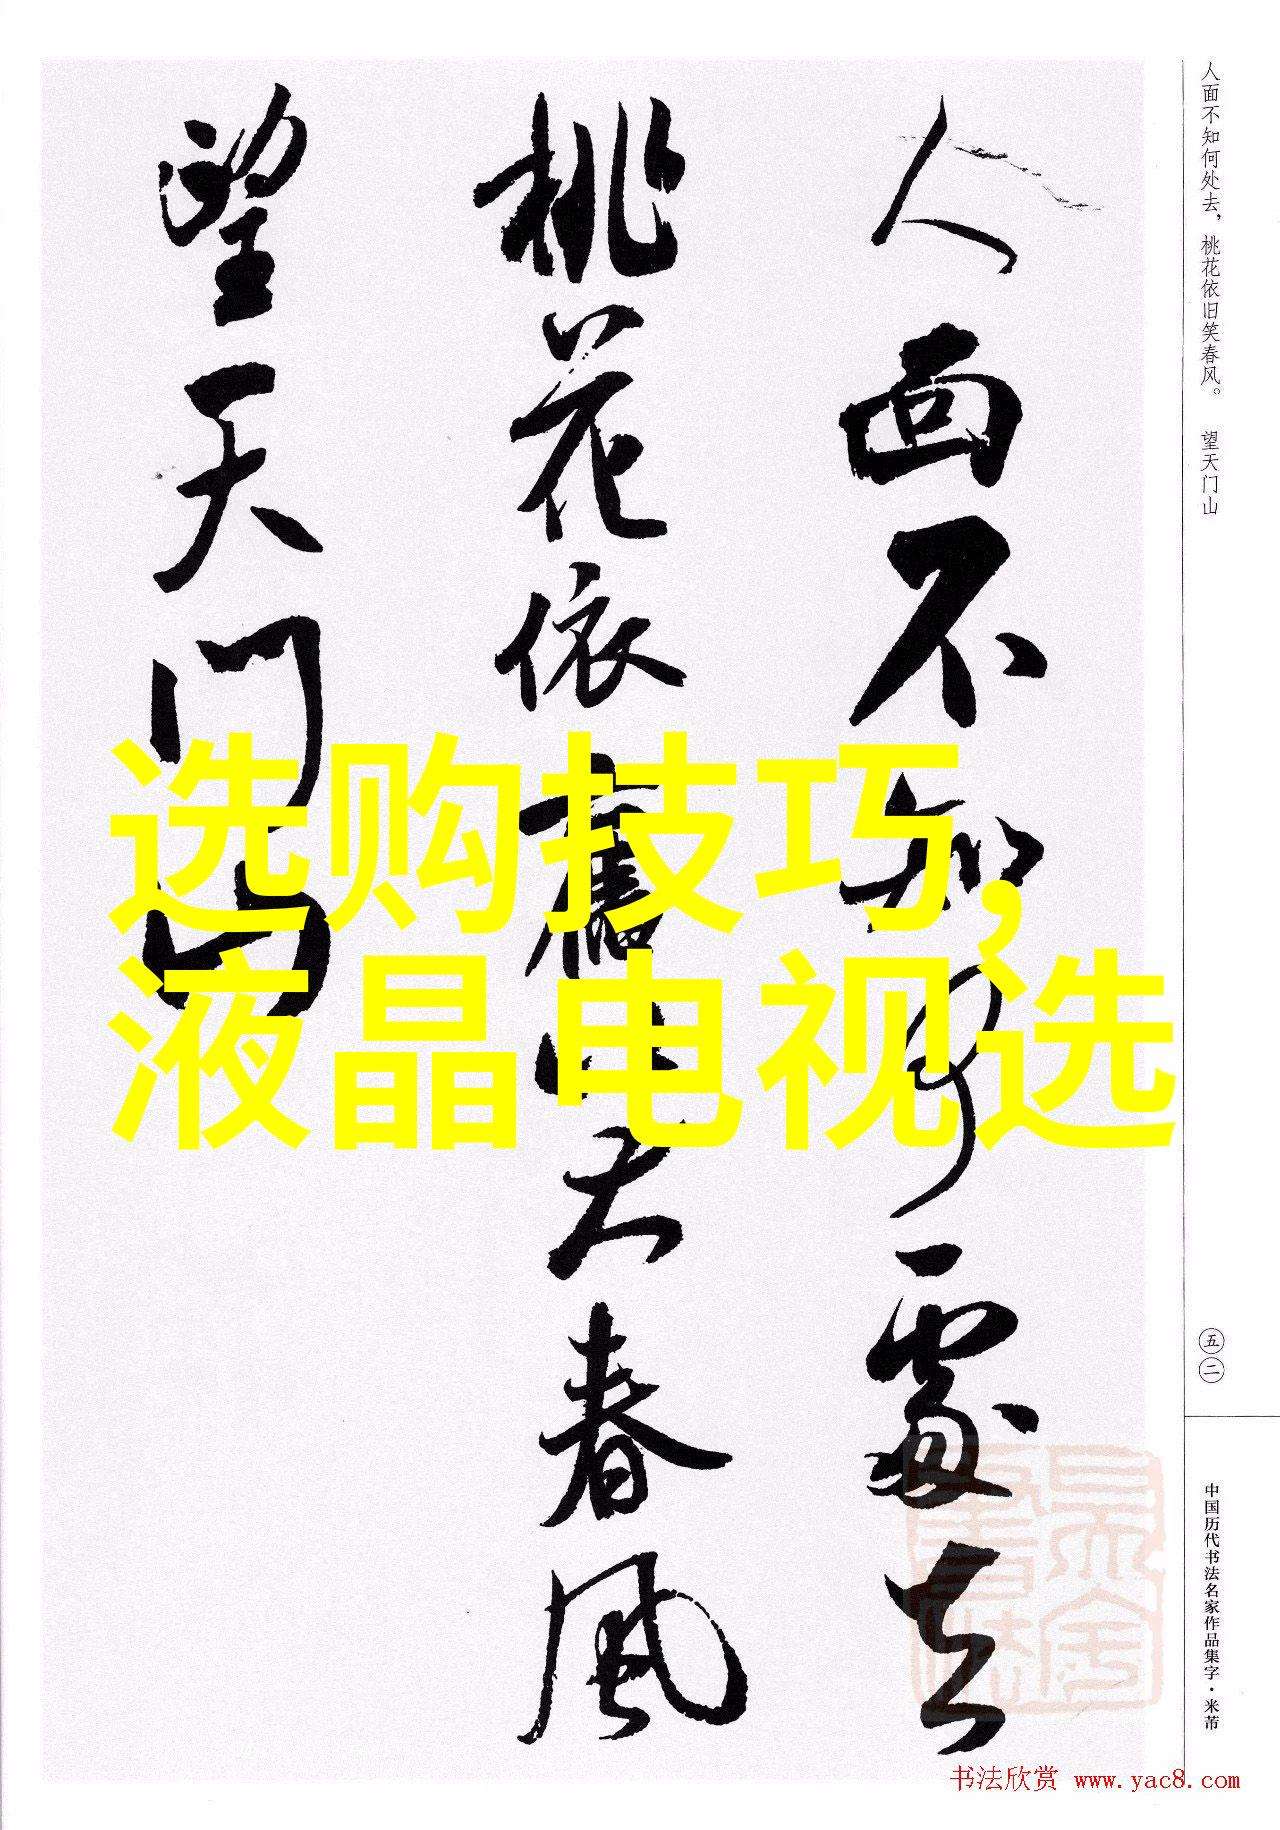 人面不知何處去
桃花依舊笑春風
望天门山
选购技巧,
液晶电视选
人面不知何处去，桃花依旧笑春风。 望天门山
五二
中国历代书法名家作品集字·米芾
书法欣赏 www.yac8.com